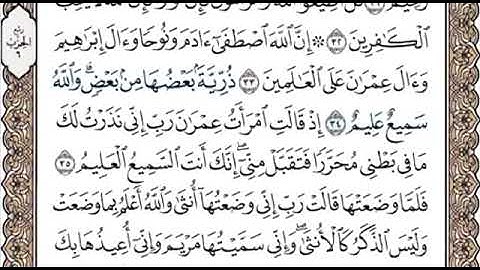 ٱلْكَـٰفِرِينَ ٣٢ ۞ إِنَّ ٱللَّهَ ٱصْطَفَىٰٓ ءَادَمَ وَنُوحًا وَءَالَ إِبْرَٰهِيمَ
وَءَالَ عِمْرَٰنَ عَلَى ٱلْعَـٰلَمِينَ ٣٣ ذُرِّيَّةًۢ بَعْضُهَا مِنۢ بَعْضٍۗ وَٱللَّهُ
سَمِيعٌ عَلِيمٌ ٣٤ إِذْ قَالَتِ ٱمْرَأَتُ عِمْرَٰنَ رَبِّ إِنِّى نَذَرْتُ لَكَ
مَا فِى بَطْنِى مُحَرَّرًا فَتَقَبَّلْ مِنِّىٓۖ إِنَّكَ أَنتَ ٱلسَّمِيعُ ٱلْعَلِيمُ ٣٥
فَلَمَّا وَضَعَتْهَا قَالَتْ رَبِّ إِنِّى وَضَعْتُهَآ أُنثَىٰ وَٱللَّهُ أَعْلَمُ بِمَا وَضَعَتْ
وَلَيْسَ ٱلذَّكَرُ كَٱلْأُنثَىٰۖ وَإِنِّى سَمَّيْتُهَا مَرْيَمَ وَإِنِّىٓ أُعِيذُهَا بِكَ
ربع
الحزب
٦